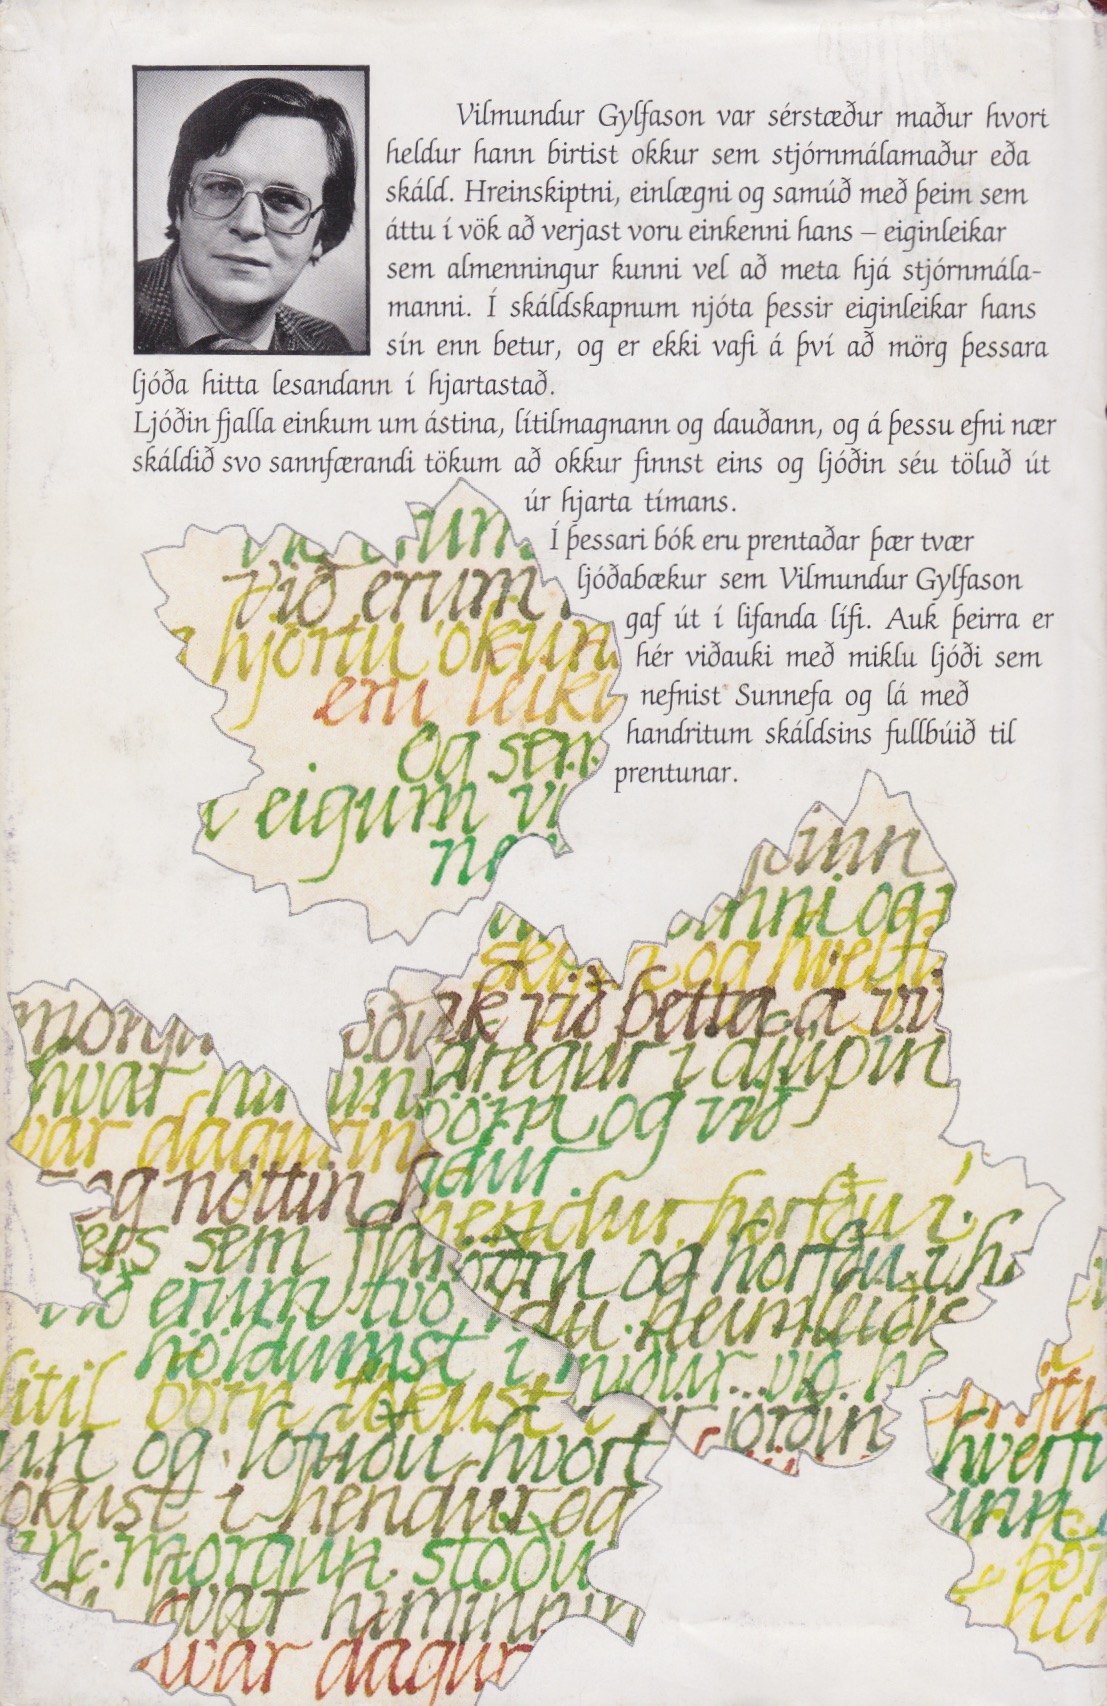 Vilmundur Gylfason var sérstæður maður hvort
heldur hann birtist okkur sem stjórnmálamaður eða
skáld. Hreinskiptni, einlægni og samúð með þeim sem
áttu í vök að verjast voru einkenni hans – eiginleikar
sem almenningur kunni vel að meta hjá stjórnmála-
manni. Í skáldskapnum njóta þessir eiginleikar hans
sín enn betur, og er ekki vafi á því að mörg þessara
ljóða hitta lesandann í hjartastað.
Ljóðin fjalla einkum um ástina, lítilmagnann og dauðann, og á þessu efni nær
skáldið svo sannfærandi tökum að okkur finnst eins og ljóðin séu töluð út
úr hjarta tímans.
Í þessari bók eru prentaðar þær tvær
ljóðabækur sem Vilmundur Gylfason
gaf út í lifanda lífi. Auk þeirra er
hér viðauki með miklu ljóði sem
nefnist Sunnefa og lá með
handritum skáldsins fullbúið til
prentunar.
við erum
hjörtu okun
eru leiki
og sem
í eigum vi
inn
inni og
og hvelf
við þetta á vi
dregur í djúpin
börn og við
hendur horfðu í
og horfðu í h
heimleiðis
niður við h
jörðin
morgu
hvar
var dagurinn
og nóttin h
ers sem
við erum tvö
höldumst í
lítil börn tókust í
og lofuðu hvort
ókust í hendur og
morgun stóðu
hvar himinninn
var dagur
hverfu